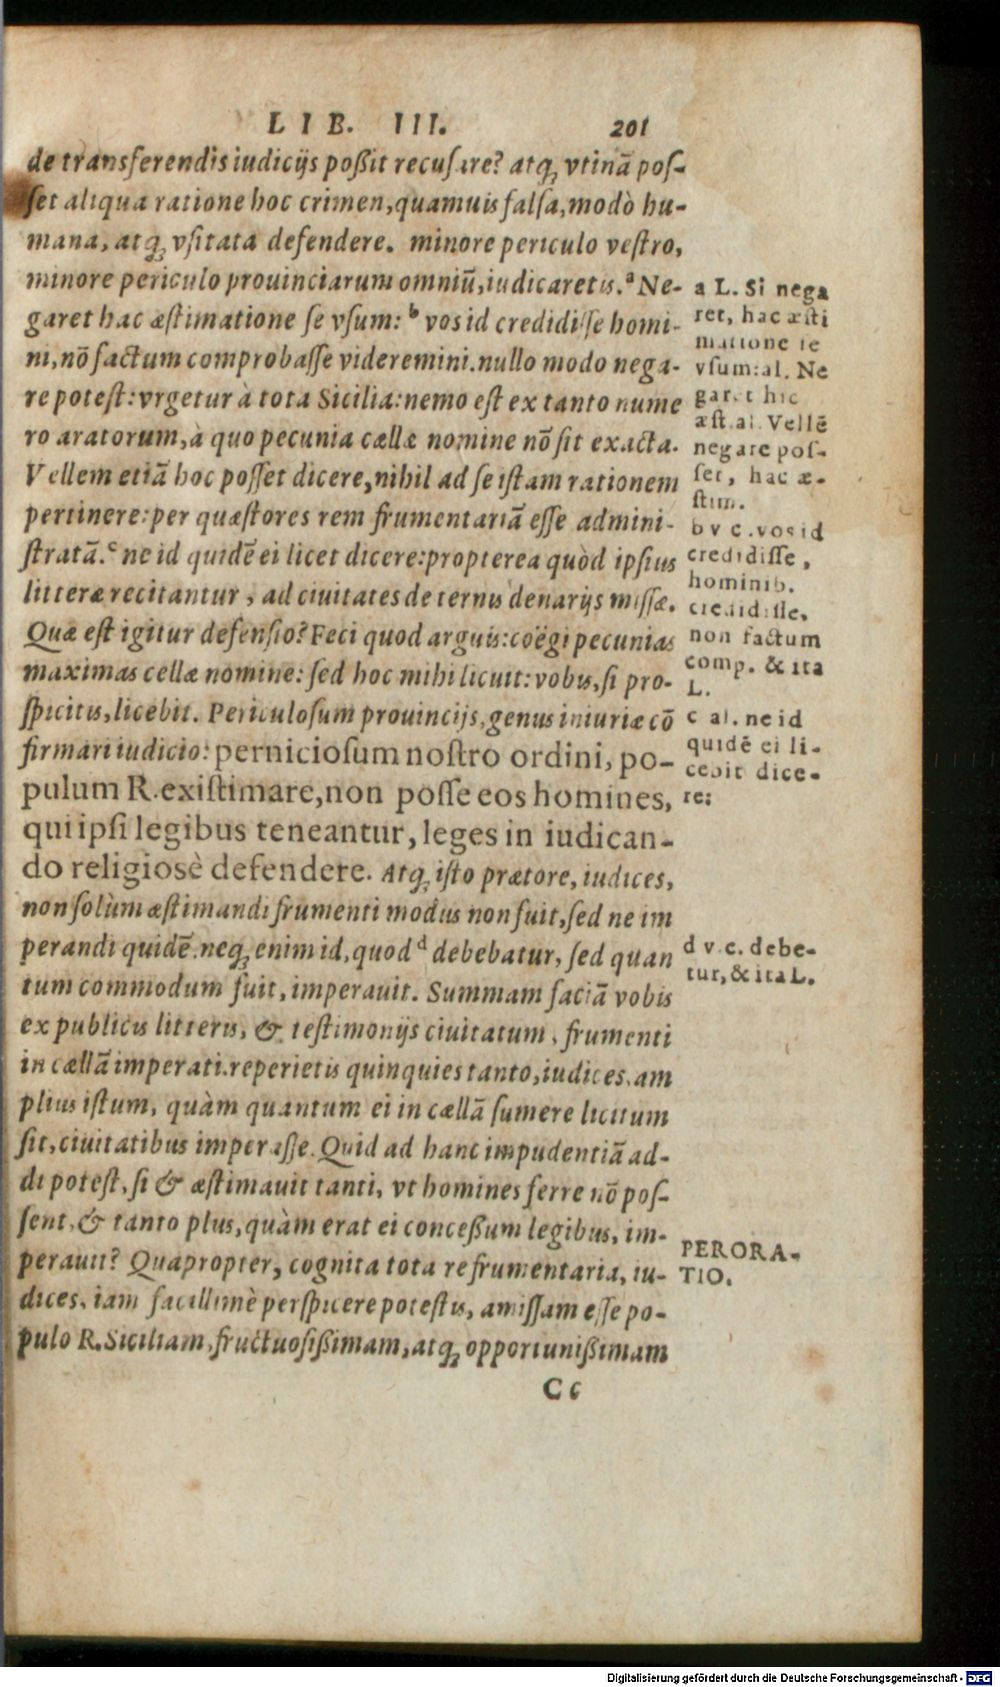 LIB. III. 201
de transferendis iudicijs poßit recusare? atq; vtinā pos-
set aliqua ratione hoc crimen, quamuis falsa, modò hu-
mana, atq; vsitata defendere. minore periculo vestro,
minore periculo prouinciarum omniū, iudicaretis.ᵃ Ne-
garet hac æstimatione se vsum: ᵇ vos id credidisse homi-
ni, nō factum comprobasse videremini. nullo modo nega-
re potest: vrgetur à tota Sicilia: nemo est ex tanto nume
ro aratorum, à quo pecunia cællæ nomine nō sit exacta.
Vellem etiā hoc posset dicere, nihil ad se istam rationem
pertinere: per quæstores rem frumentariā esse admini-
stratā.ᶜ ne id quidē ei licet dicere: propterea quòd ipsius
litteræ recitantur, ad ciuitates de ternis denarijs missæ.
Quæ est igitur defensio? Feci quod arguis: coëgi pecunias
maximas cellæ nomine: sed hoc mihi licuit: vobis, si pro-
spicitis, licebit. Periculosum prouincijs, genus iniuriæ cō
firmari iudicio: perniciosum nostro ordini, po-
pulum R. existimare, non posse eos homines,
qui ipsi legibus teneantur, leges in iudican-
do religiosè defendere. Atq; isto prætore, iudices,
non solùm æstimandi frumenti modus non fuit, sed ne im
perandi quidē. neq; enim id, quod ᵈ debebatur, sed quan
tum commodum fuit, imperauit. Summam faciā vobis
ex publicis litteris, & testimonijs ciuitatum, frumenti
in cællā imperati. reperietis quinquies tanto, iudices, am
plius istum, quàm quantum ei in cællā sumere licitum
sit, ciuitatibus imperasse. Quid ad hanc impudentiā ad-
di potest, si & æstimauit tanti, vt homines ferre nō pos-
sent, & tanto plus, quàm erat ei conceßum legibus, im-
perauit? Quapropter, cognita tota re frumentaria, iu-
dices, iam facillimè perspicere potestis, amissam esse po-
pulo R. Siciliam, fructuosißimam, atq; opportunißimam
Cc
a L. Si nega
ret, hac æsti
matione se
vsum: al. Ne
garet hic
æst. al. Vellē
negare pos-
set, hac æ-
stim.
b v c. vos id
credidisse,
hominib.
credidisse,
non factum
comp. & ita
L.
c al. ne id
quidē ei li-
cebit dice-
re:
d v. c. debe-
tur, & ita L.
PERORA-
TIO.
Digitalisierung gefördert durch die Deutsche Forschungsgemeinschaft - DFG